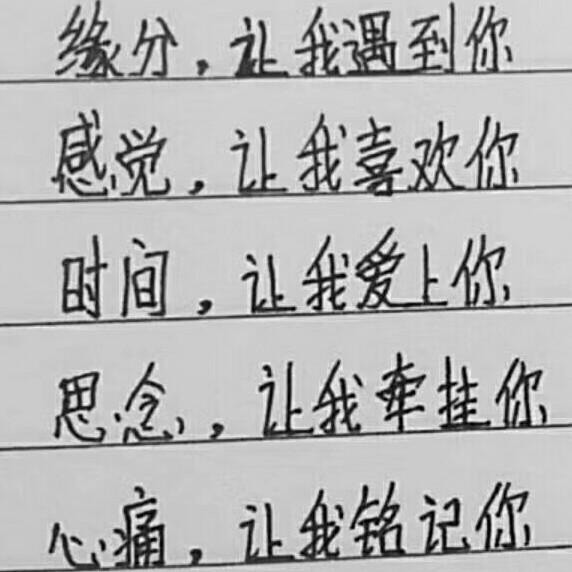 缘分，让我遇到你
感觉，让我喜欢你
时间，让我爱上你
思念，让我牵挂你
心痛，让我铭记你